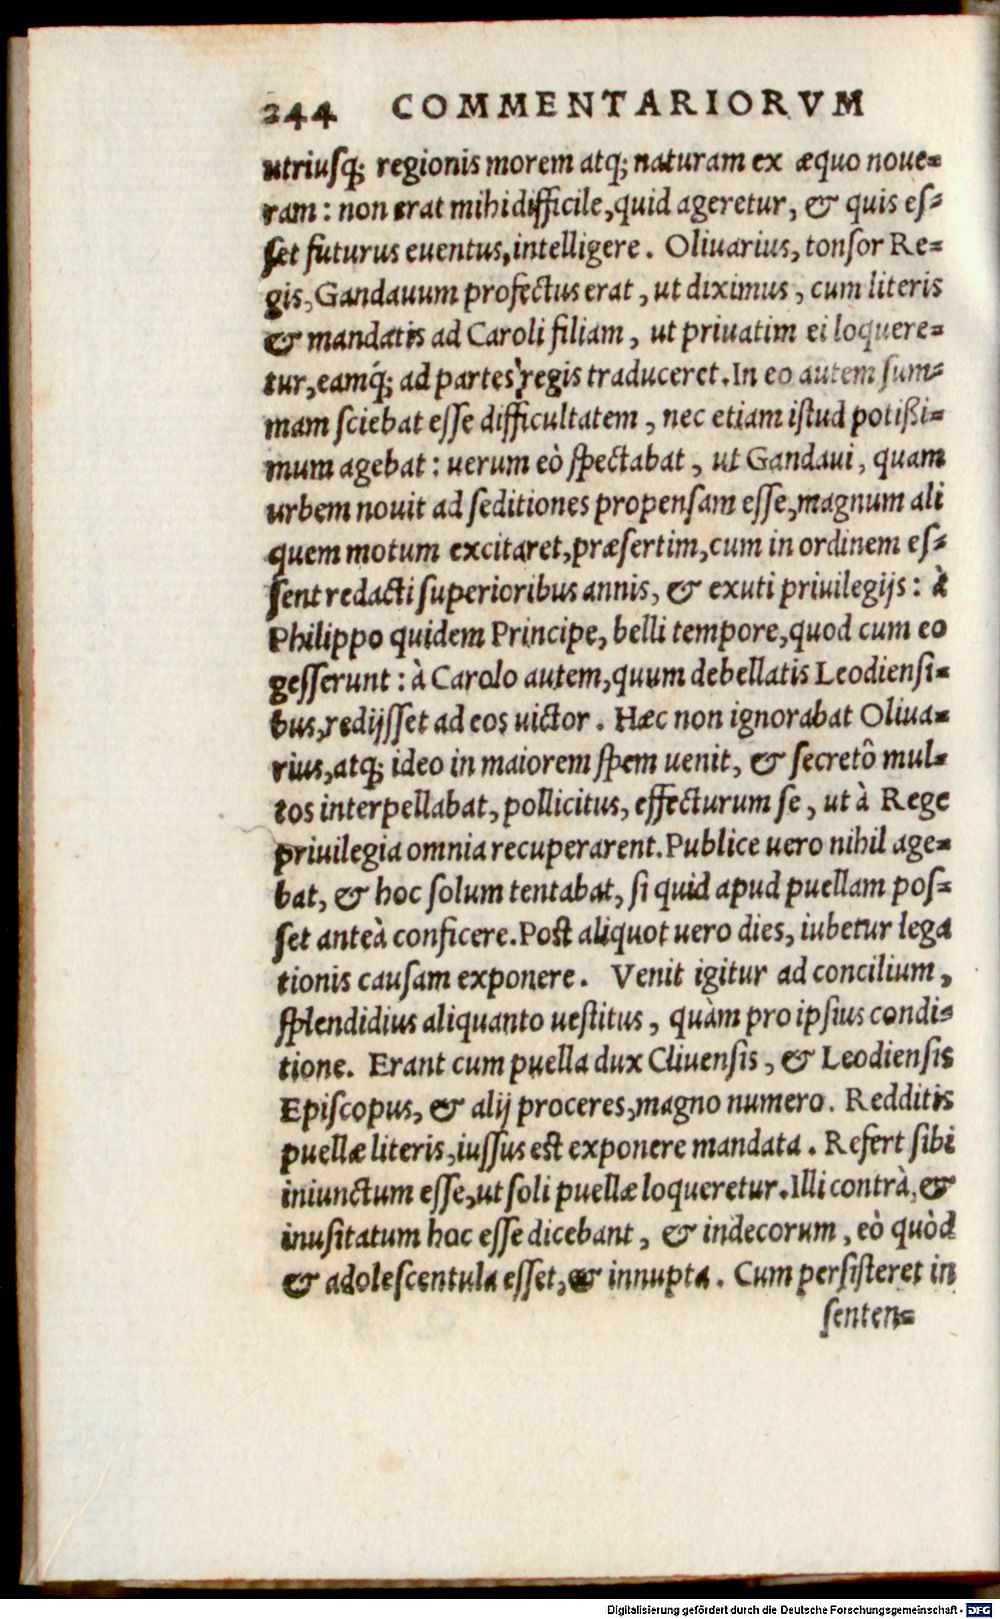 244 COMMENTARIORVM
utriusq; regionis morem atq; naturam ex æquo noue=
ram: non erat mihi difficile, quid ageretur, & quis es=
set futurus euentus, intelligere. Oliuarius, tonsor Re=
gis, Gandauum profectus erat, ut diximus, cum literis
& mandatis ad Caroli filiam, ut priuatim ei loquere=
tur, eamq; ad partes regis traduceret. In eo autem sum=
mam sciebat esse difficultatem, nec etiam istud potißi=
mum agebat: uerum eò spectabat, ut Gandaui, quam
urbem nouit ad seditiones propensam esse, magnum ali
quem motum excitaret, præsertim, cum in ordinem es=
sent redacti superioribus annis, & exuti priuilegijs: à
Philippo quidem Principe, belli tempore, quod cum eo
gesserunt: à Carolo autem, quum debellatis Leodiensi=
bus, redijsset ad eos uictor. Hæc non ignorabat Oliua=
rius, atq; ideo in maiorem spem uenit, & secretô mul=
tos interpellabat, pollicitus, effecturum se, ut à Rege
priuilegia omnia recuperarent. Publice uero nihil age=
bat, & hoc solum tentabat, si quid apud puellam pos=
set anteà conficere. Post aliquot uero dies, iubetur lega
tionis causam exponere. Venit igitur ad concilium,
splendidius aliquanto uestitus, quàm pro ipsius condi=
tione. Erant cum puella dux Cliuensis, & Leodiensis
Episcopus, & alij proceres, magno numero. Redditis
puellæ literis, iussus est exponere mandata. Refert sibi
iniunctum esse, ut soli puellæ loqueretur. Illi contrà, &
inusitatum hoc esse dicebant, & indecorum, eò quòd
& adolescentula esset, & innupta. Cum persisteret in
senten=
Digitalisierung gefördert durch die Deutsche Forschungsgemeinschaft - DFG